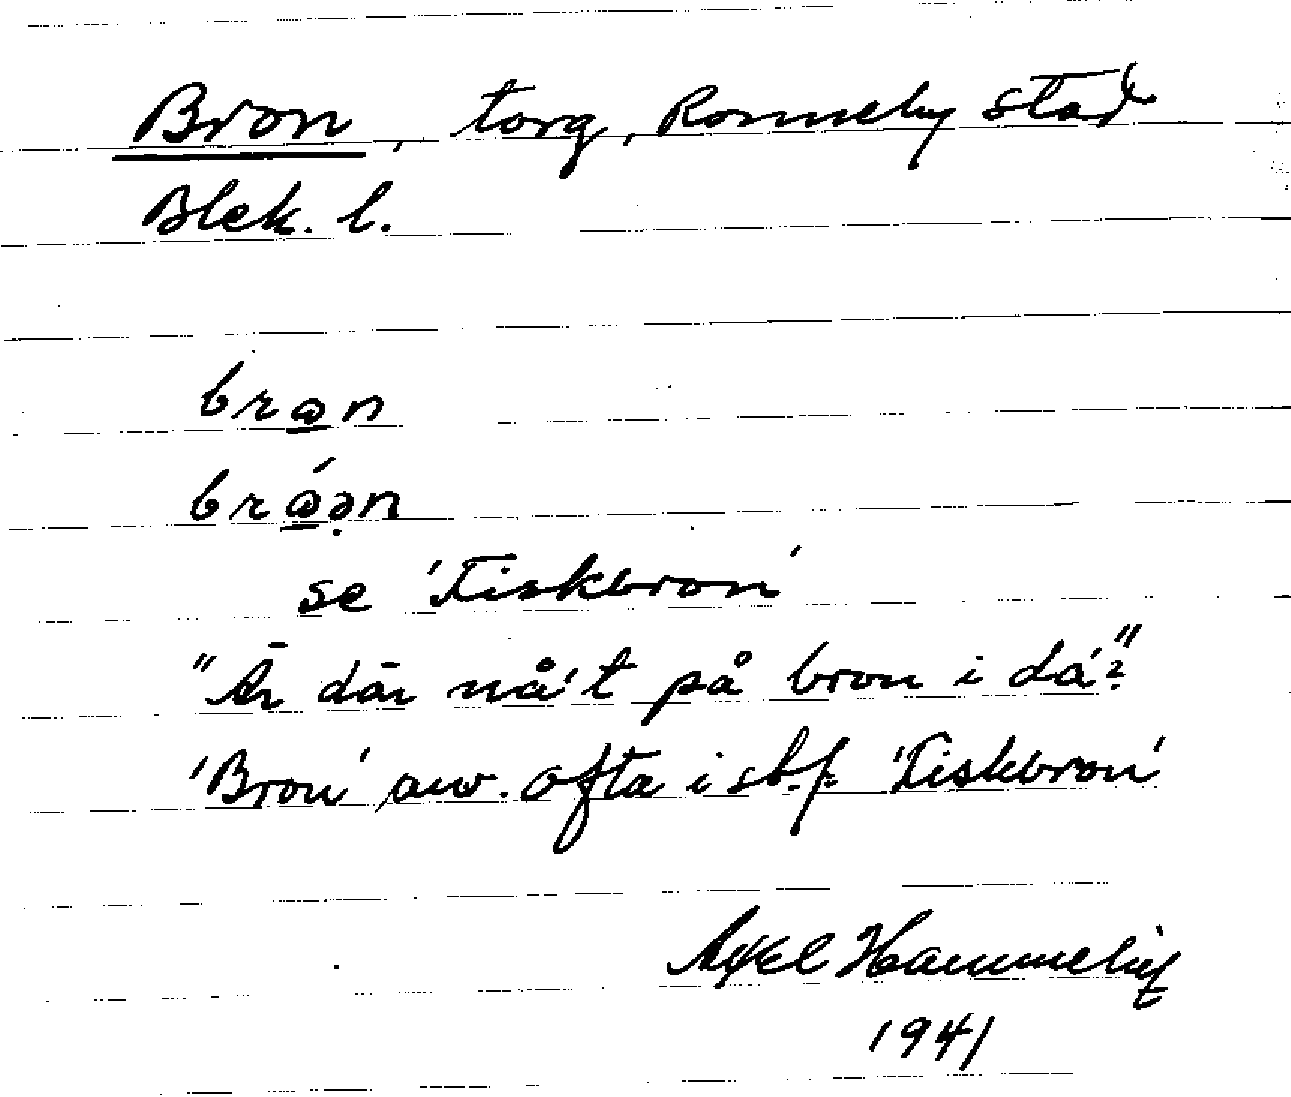 Bron, torg, Ronneby stad
Blek. l.
bran
bráən
se 'Fiskbron'
"Är där nå't på bron i da'?"
'Bron' anv. ofta i st. f. 'Fiskbron'
Axel Hammelig
1941